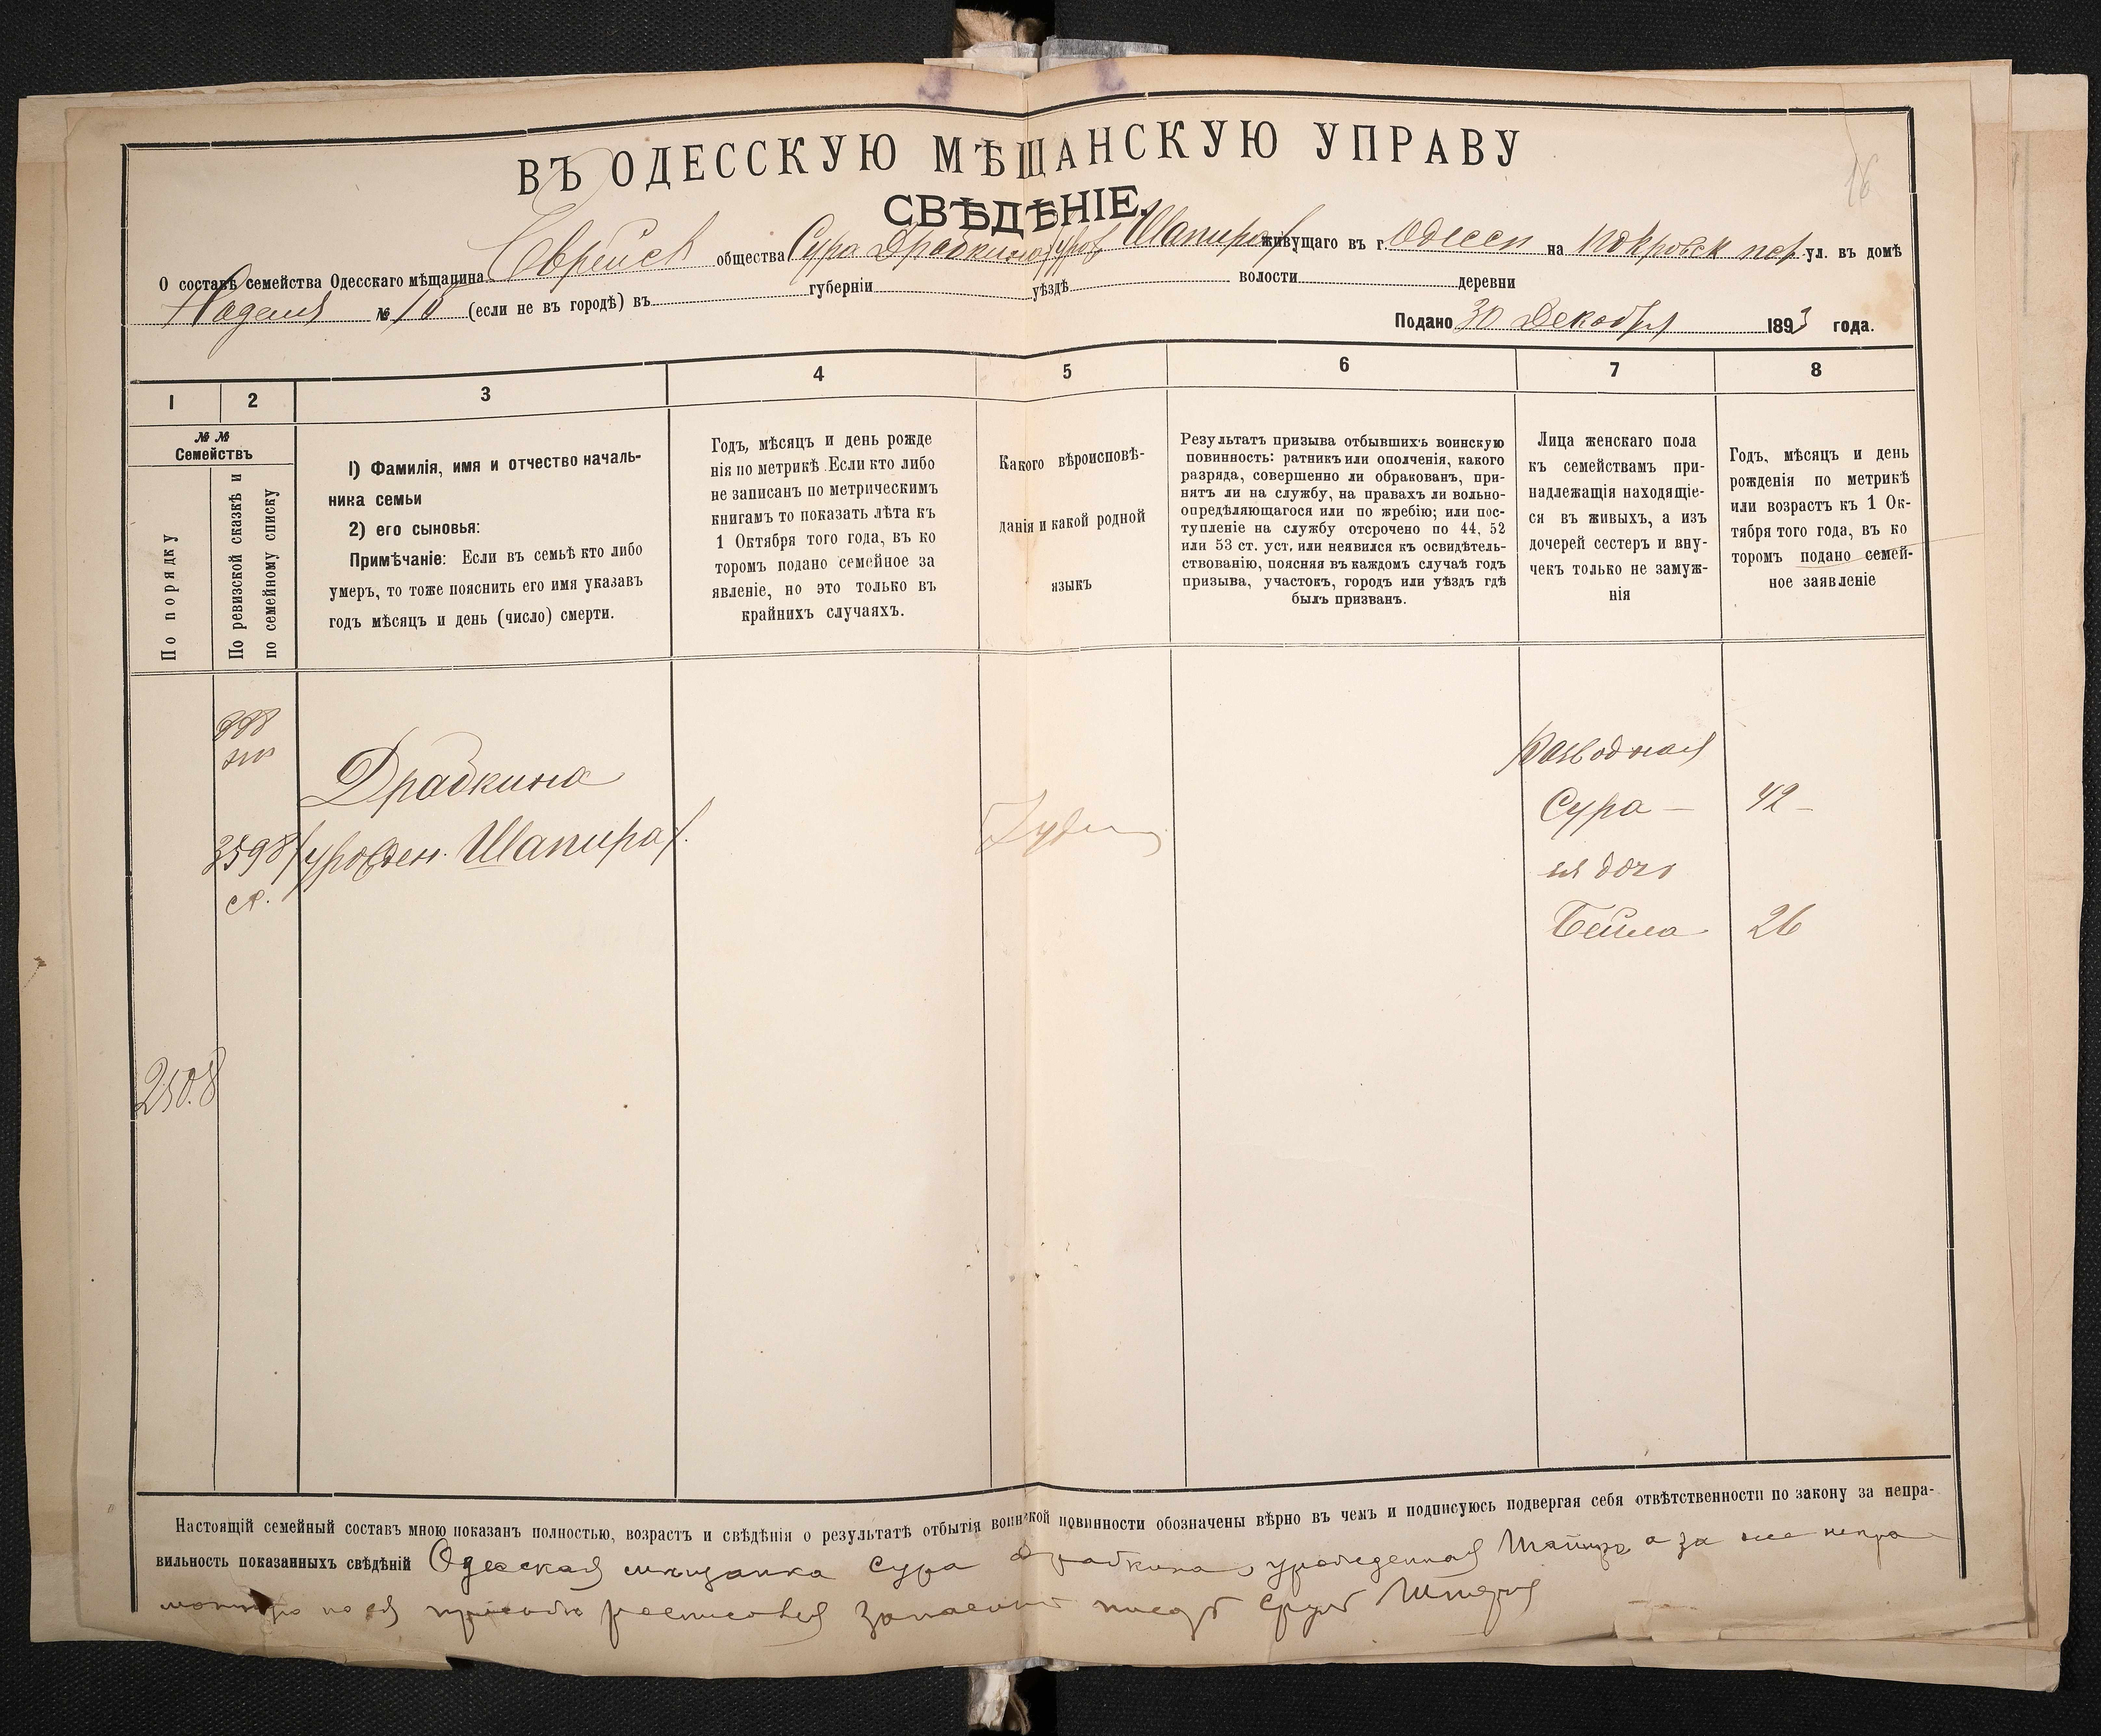 16
ВЪ ОДЕССКУЮ МѢЩАНСКУЮ УПРАВУ
СВѢДѢНІЕ.
О составѣ семейства Одесскаго мѣщанина Еврейск общества Сура Драбкина (уров Шапиро) живущаго въ г. Одессы на Покровск пер ул. въ домѣ
№ 10 (если не въ городѣ) въ губерніи уѣздѣ волости деревни
Подано 30 Декабря 1893 года.
1 2 3 4 5 6 7 8
№ №
Семействъ
По порядку
По ревизской сказкѣ и
по семейному списку
1) Фамилія, имя и отчество началь-
ника семьи
2) его сыновья:
Примѣчаніе: Если въ семьѣ кто либо
умеръ, то тоже пояснить его имя указавъ
годъ мѣсяцъ и день (число) смерти.
Годъ, мѣсяцъ и день рожде
нія по метрикѣ. Если кто либо
не записанъ по метрическимъ
книгамъ то показать лѣта къ
1 Октября того года, въ ко
торомъ подано семейное за
явленіе, но это только въ
крайнихъ случаяхъ.
Какого вѣроисповѣ-
данія и какой родной
языкъ
Результатъ призыва отбывшихъ воинскую
повинность: ратникъ или ополченія, какого
разряда, совершенно ли обракованъ, при-
нятъ ли на службу, на правахъ ли вольно-
опредѣляющагося или по жребію; или пос-
тупленіе на службу отсрочено по 44, 52
или 53 ст. уст. или неявился къ освидѣтель-
ствованію, поясняя въ каждомъ случаѣ годъ
призыва, участокъ, городъ или уѣздъ гдѣ
былъ призванъ.
Лица женскаго пола
къ семействамъ при-
надлежащія находящіе-
ся въ живыхъ, а изъ
дочерей сестеръ и вну-
чекъ только не замуж-
нія
Годъ, мѣсяцъ и день
рожденія по метрикѣ
или возрастъ къ 1 Ок-
тября того года, въ ко
торомъ подано семей-
ное заявленіе
Драбкина
3598
(урожден. Шапира).
ск.
Іудей
Разводная
Сура – 42 –
ея дочь
Бейла 26
2508
Настоящій семейный составъ мною показанъ полностью, возрастъ и свѣдѣнія о результатѣ отбытія воинской повинности обозначены вѣрно въ чемъ и подписуюсь подвергая себя отвѣтственности по закону за непра-
вильность показанныхъ свѣдѣній Одесская мѣщанка Сура Драбкина, урожденная Шапира а за нее негра
мотную по ея просьбѣ росписовся Запасный